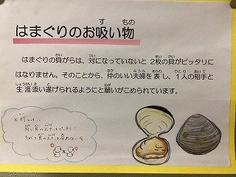 はまぐりのお吸い物
す もの
はまぐりの貝がらは、対になっていないと2枚の貝がピッタリに
はなりません。そのことから、仲のいい夫婦を表し、1人の相手と
生涯添い遂げられるようにと願いがこめられています。